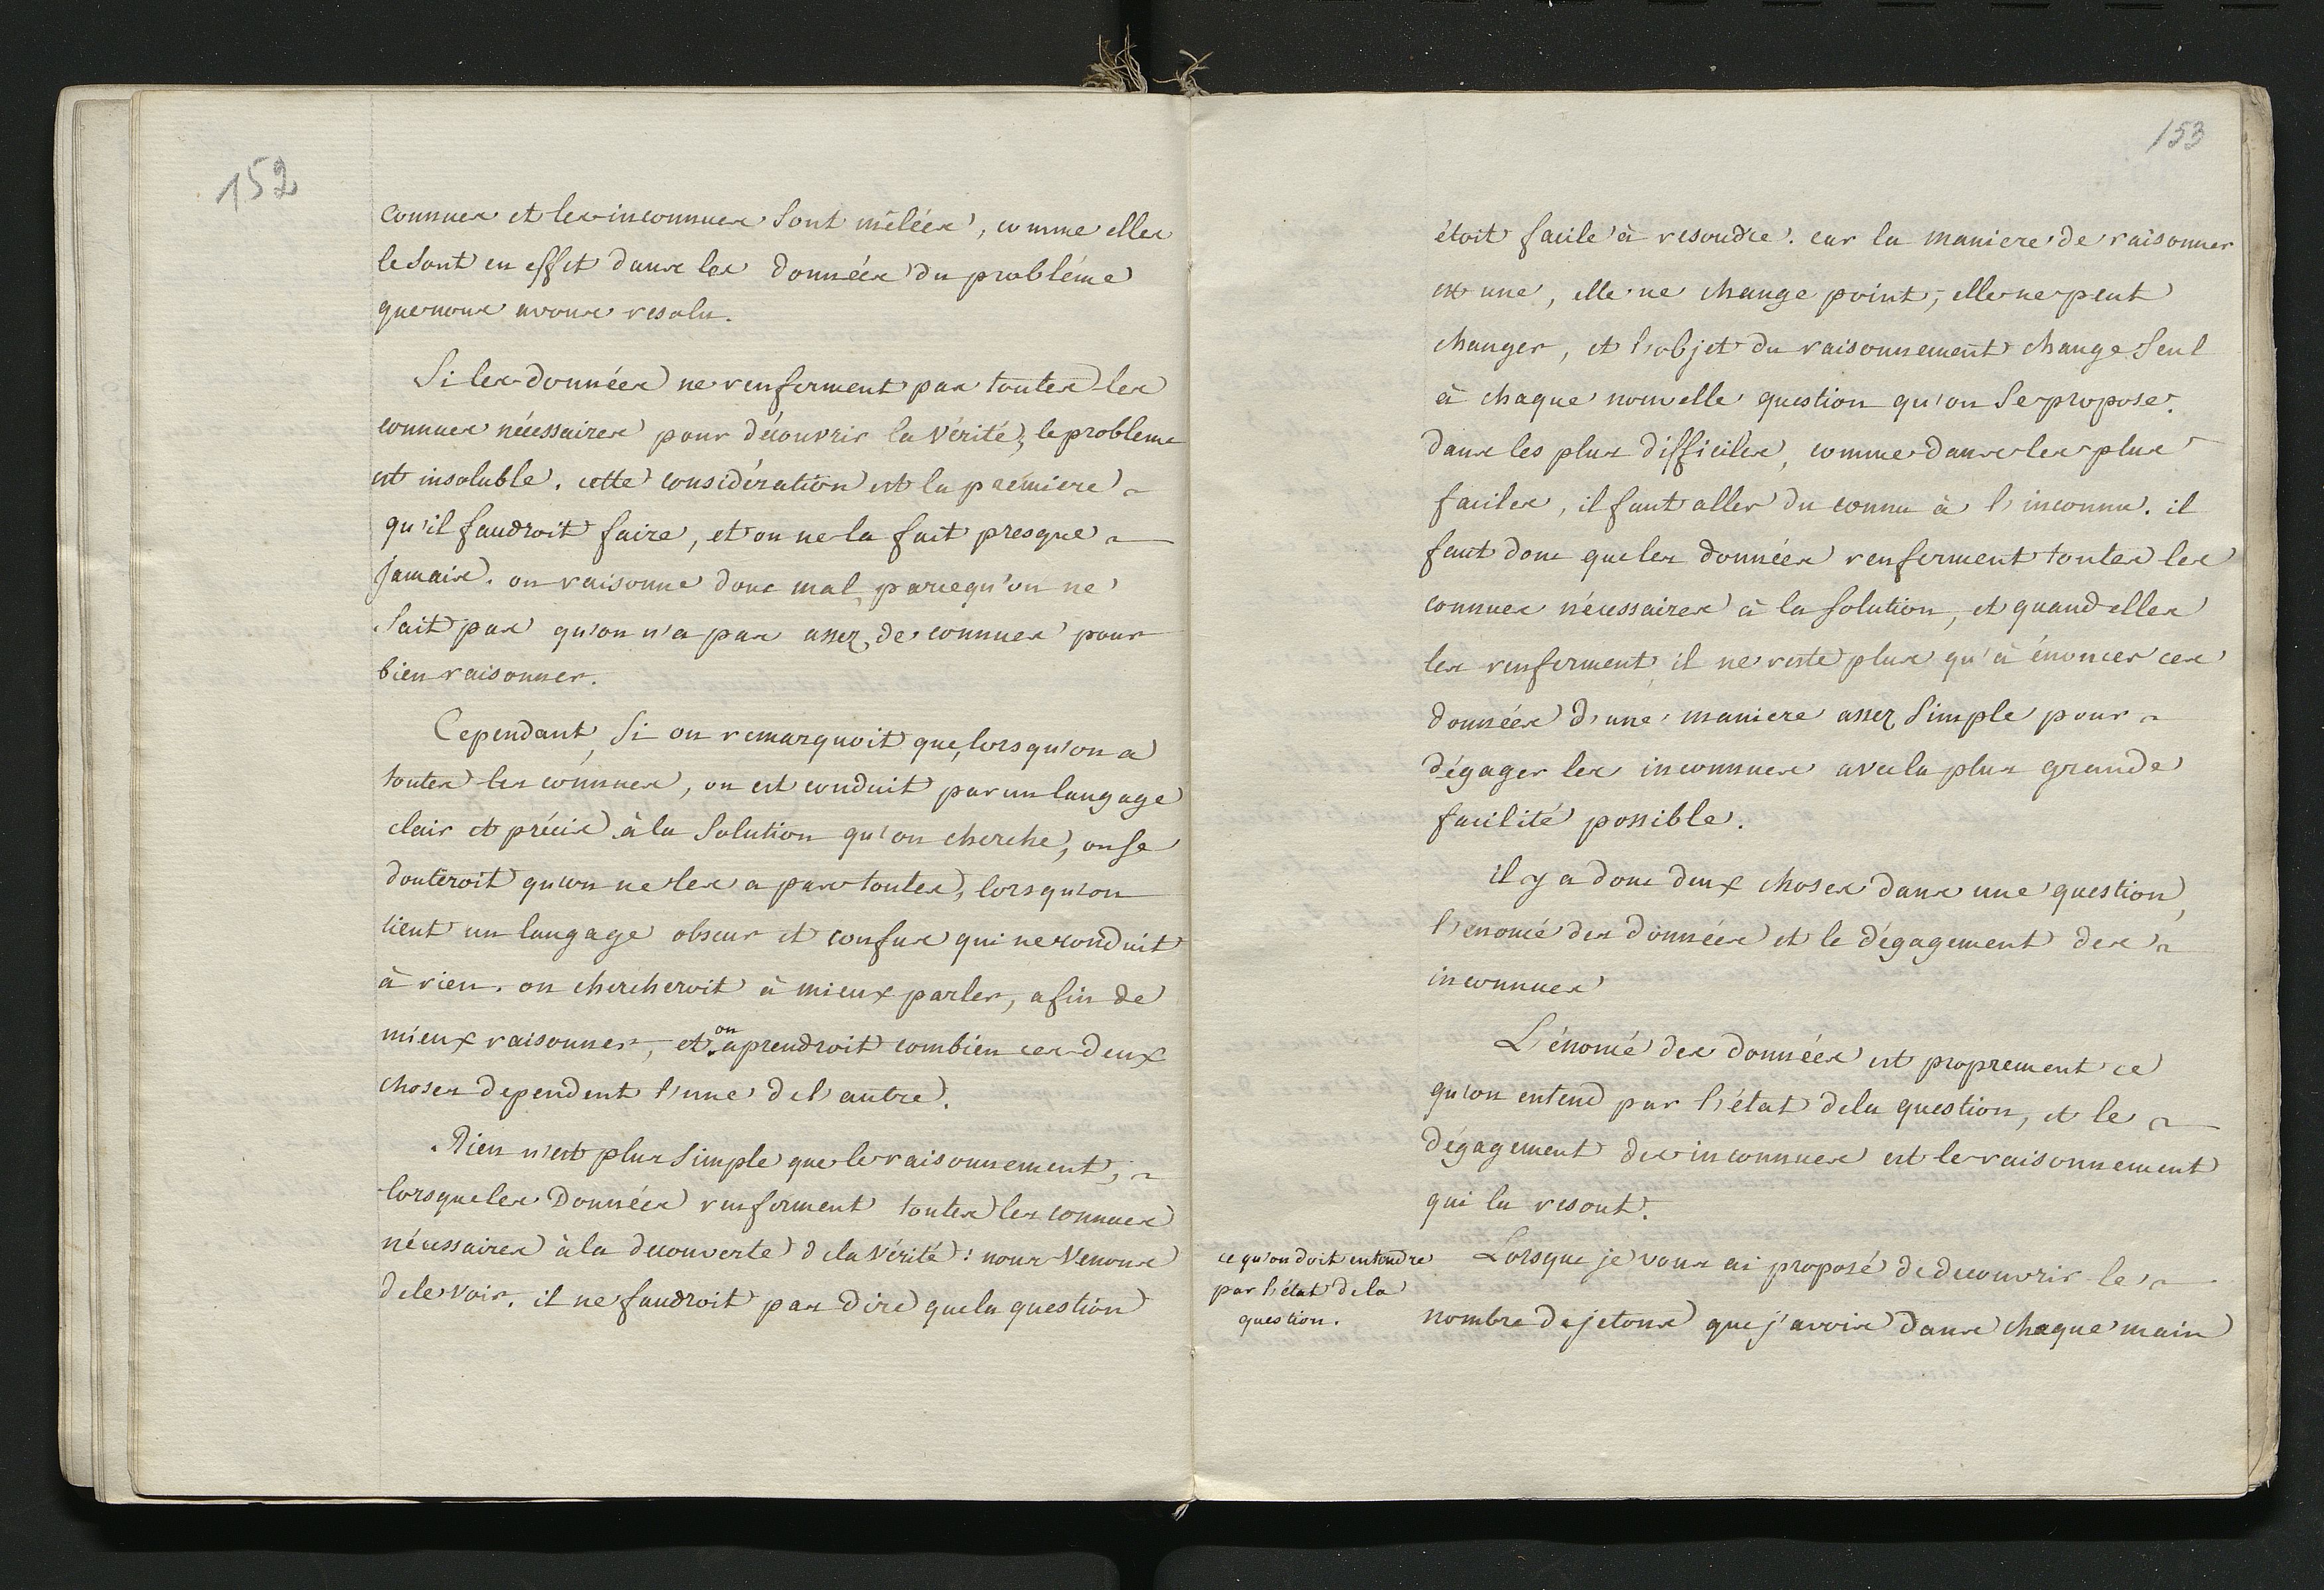 152
connues et les inconnues sont mêlées, comme elles
le sont en effet dans les données du probléme
que nous avons resolu.
Si les données ne renferment pas toutes les
connues nécessaires pour découvrir la vérité, le probleme
est insoluble. cette considération est la premiere
qu'il faudroit faire, et on ne la fait presque
jamais. on raisonne donc mal, parcequ'on ne
sait pas qu'on n'a pas assez de connues pour
bien raisonner.
Cependant, si on remarquoit que, lorsqu'on a
toutes les connues, on est conduit par un langage
clair et précis à la solution qu'on cherche, on se
douteroit qu'on ne les a pas toutes, lorsqu'on
tient un langage obscur et confus qui ne conduit
à rien. on chercheroit à mieux parler, afin de
mieux raisonner, et on aprendroit combien ces deux
choses dependent l'une de l'autre.
Rien n'est plus simple que le raisonnement,
lorsque les Données renferment toutes les connues
nécessaires à la decouverte de la vérité : nous venons
de le voir. il ne faudroit pas dire que la question
153
étoit facile à resoudre. car la maniere de raisonner
est une, elle ne change point, elle ne peut
changer, et l'objet du raisonnement change seul
à chaque nouvelle question qu'on se propose.
dans les plus difficiles, comme dans les plus
faciles, il faut aller du connu à l'inconnu. il
faut donc que les données renferment toutes les
connues nécessaires à la solution, et quand elles
les renferment, il ne reste plus qu'à énoncer ces
données d'une maniere assez simple pour
dégager les inconnues avec la plus grande
facilité possible.
il y a donc deux choses dans une question,
l'enoncé des données et le dégagement des
inconnues
L'énoncé des données est proprement ce
qu'on entend par l'état de la question, et le
dégagement des inconnues est le raisonnement
qui la resout.
ce qu'on doit entendre
par l'état de la
question.
Lorsque je vous ai proposé de decouvrir le
nombre de jetons que j'avois dans chaque main